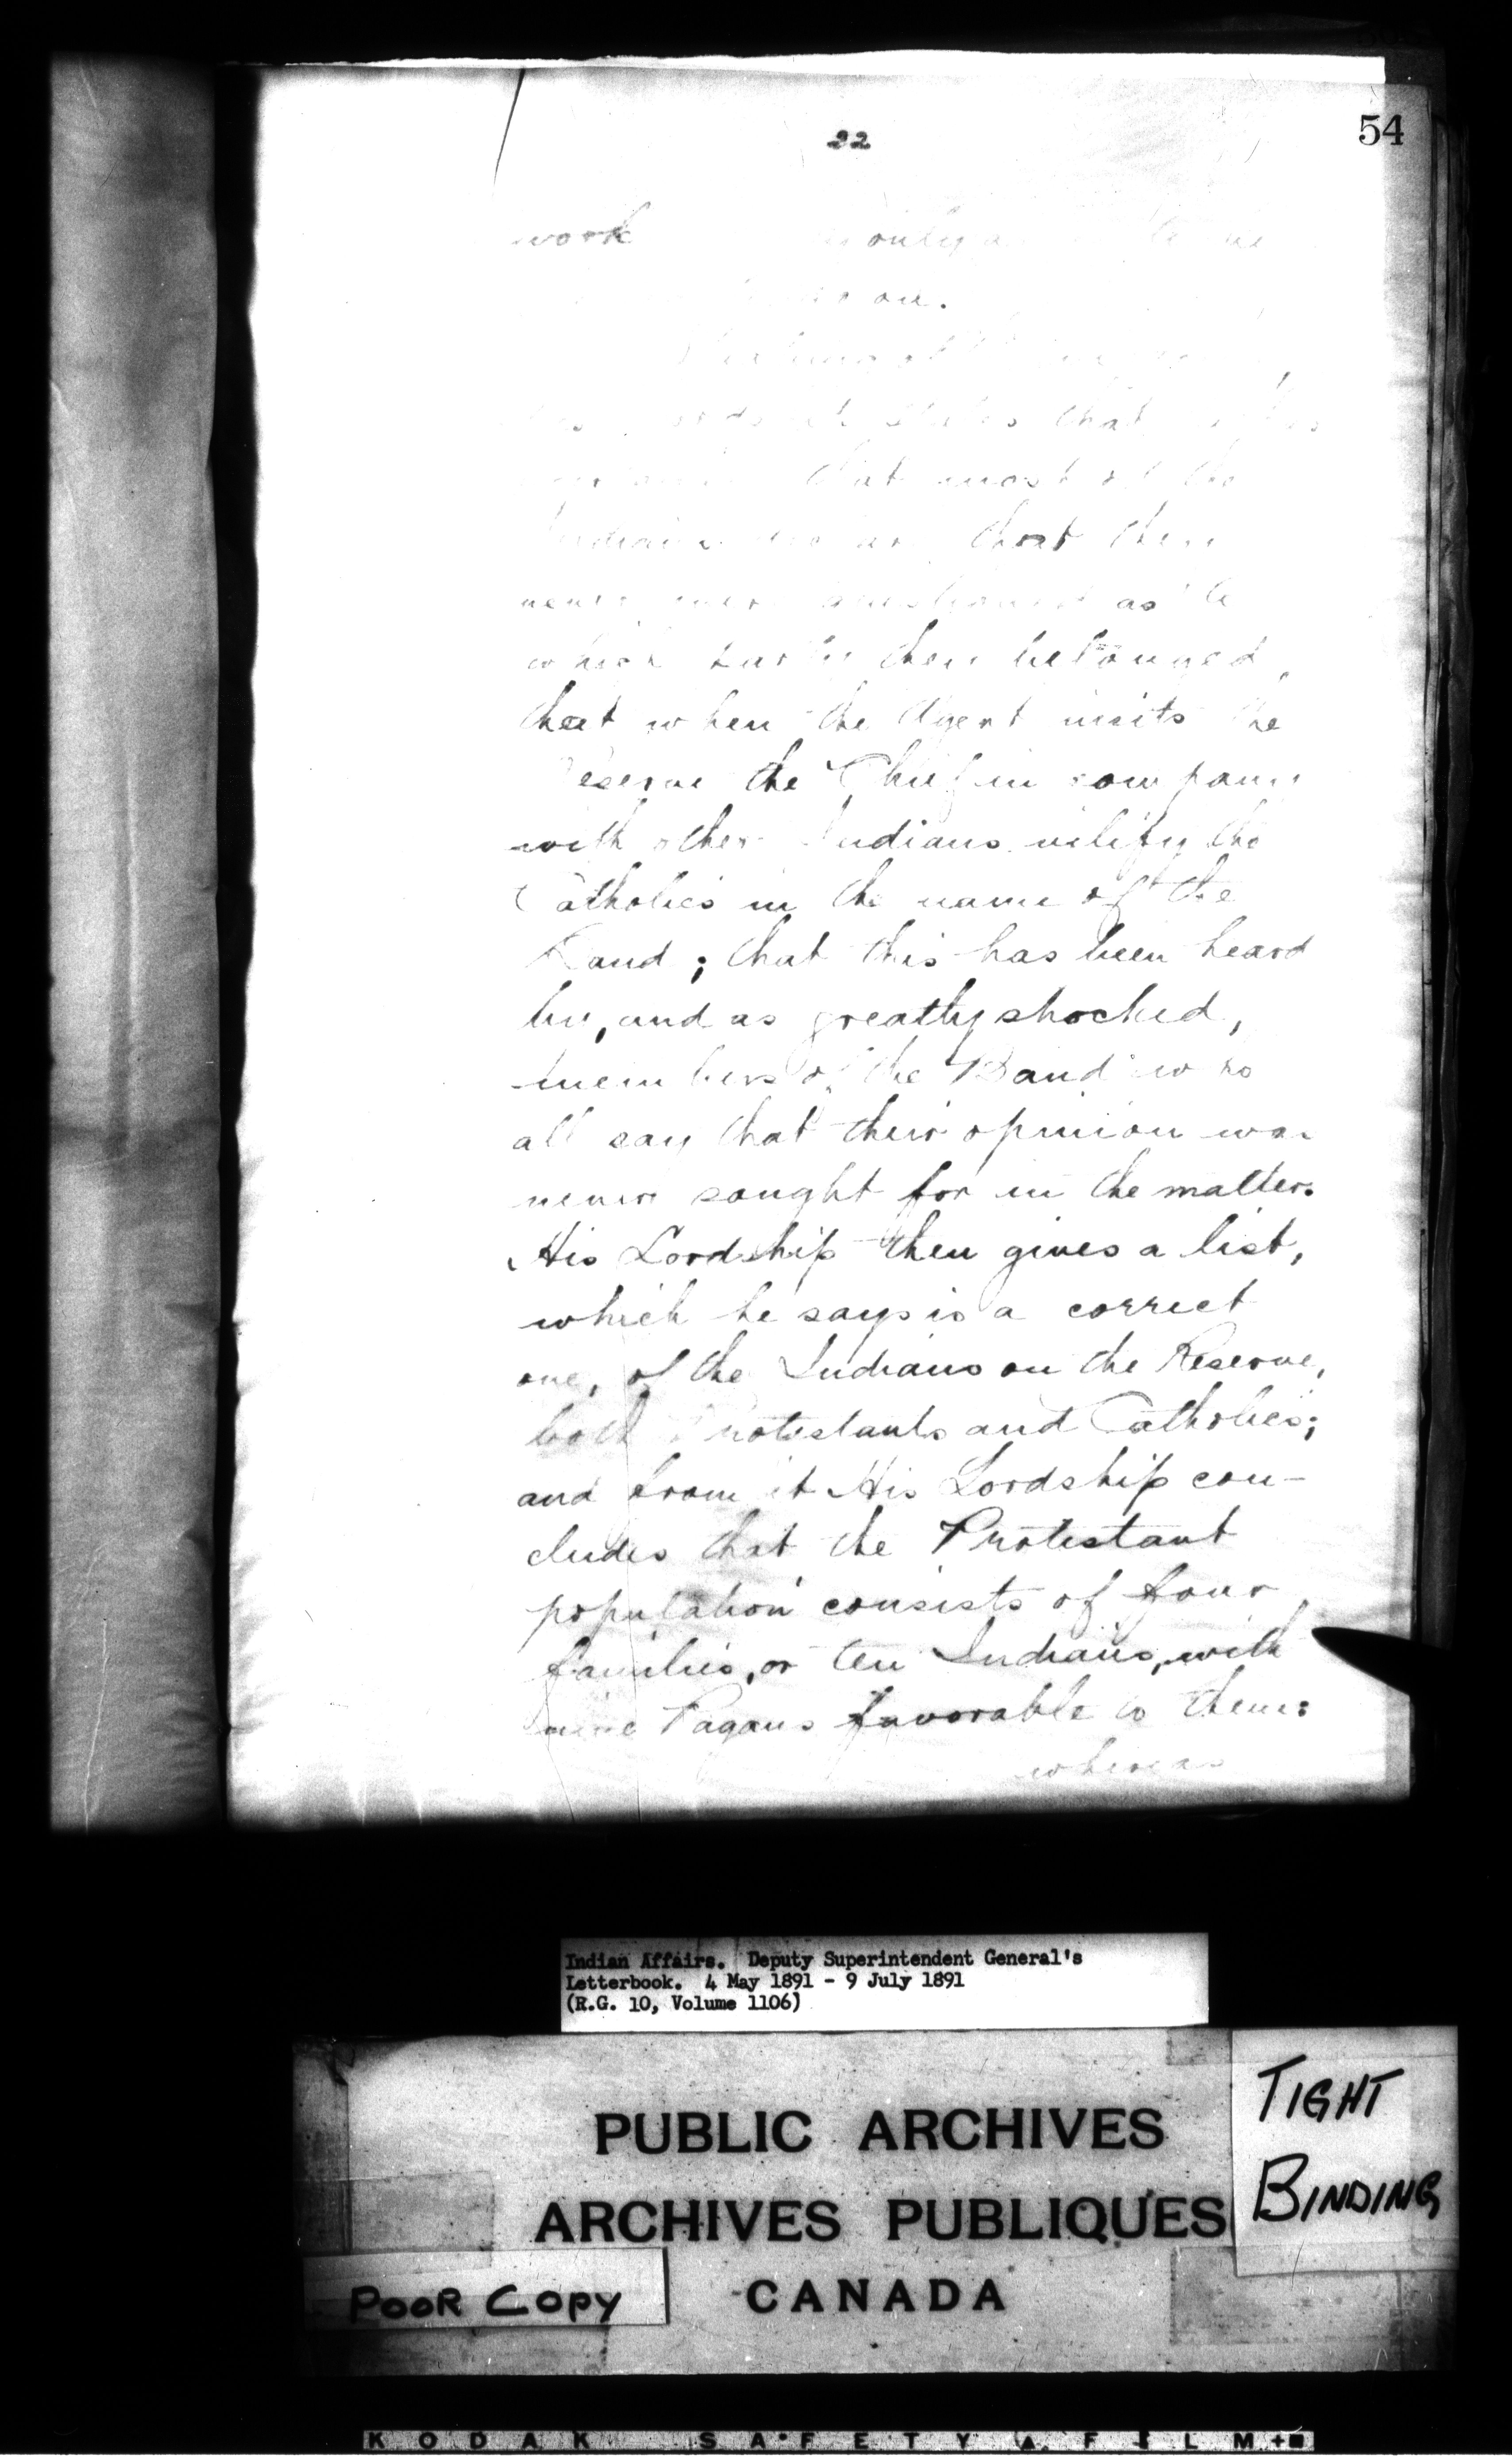 54
22
work only
on.
that
that most of the
Indians that they
never were questioned as to
which party they belonged,
that when the Agent visits the
Reserve the Chief in company
with other Indians vilify the
Catholics in the name of the
Band; that this has been heard
by, and as greatly shocked,
members of the Band who
all say that their opinion was
never sought for in the matter.
His Lordship then gives a list,
which he says is a correct
one, of the Indians on the Reserve,
both Protestants and Catholics;
and from it His Lordship con-
cludes that the Protestant
population consists of four
families, or ten Indians, with
nine Pagans favorable to them:
whereas
Indian Affairs. Deputy Superintendent General's
Letterbook. 4 May 1891 - 9 July 1891
(R.G. 10, Volume 1106)
PUBLIC ARCHIVES
ARCHIVES PUBLIQUES
CANADA
TIGHT
BINDING
POOR COPY
KODAK SAFETY FILM